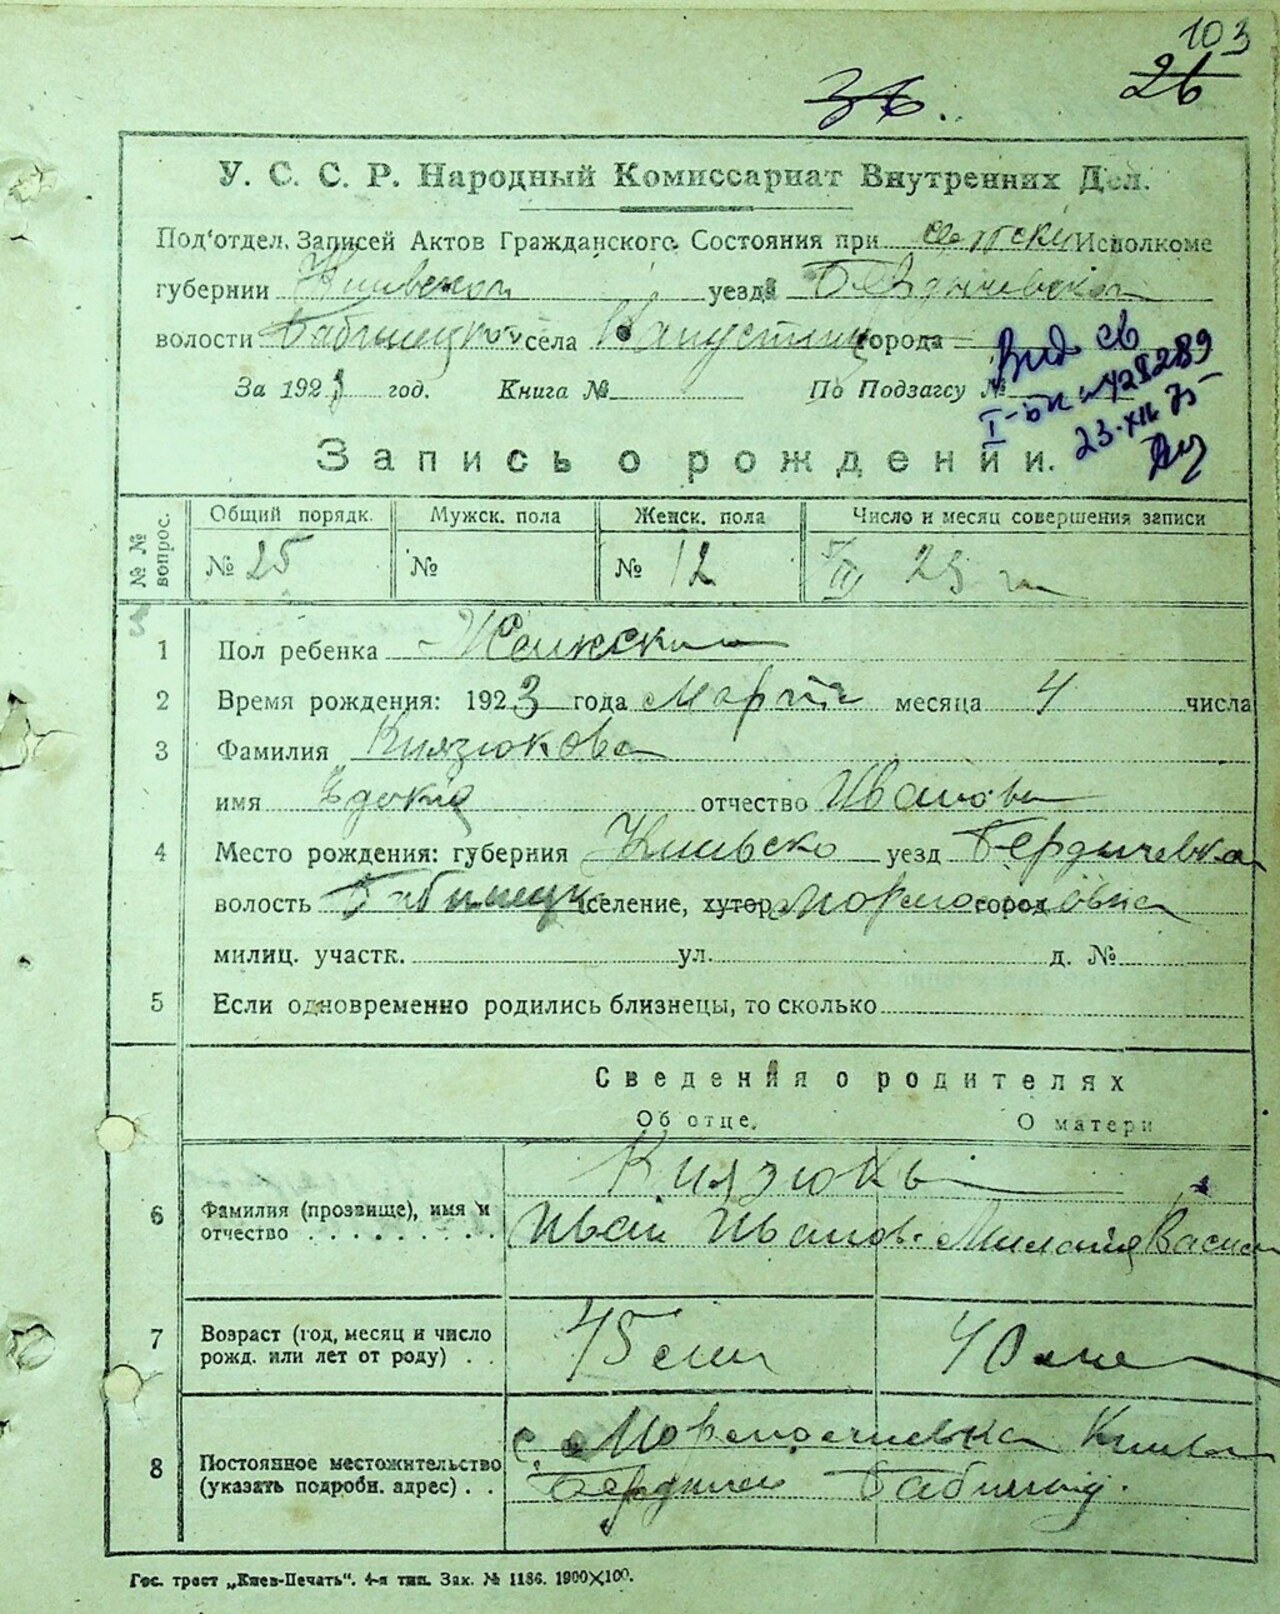 103
26
36.
У. С. С. Р. Народный Комиссариат Внутренних Дел.
Под'отдел. Записей Актов Гражданского Состояния при Исполкоме
губернии Киивской уезда Бердычевской
волости села города
За 1923 год. Книга № По Подзагсу №
Вид св
I-БК № 428289
23·XII 75
Запись о рождении.
№№ вопрос.
Общий порядк. Мужск. пола Женск. пола Число и месяц совершения записи
№ 25 № № 12 5/III 23 г
1 Пол ребенка Женски
2 Время рождения: 1923 года Марта месяца 4 числа
3 Фамилия Князюкова
имя отчество Иванови
4 Место рождения: губерния Киивско уезд Бердычевка
волость селение, хутор город
милиц. участк. ул. д. №
5 Если одновременно родились близнецы, то сколько
Сведения о родителях
Об отце. О матери
Князюкы
6 Фамилия (прозвище), имя и отчество Иван Иванов. Василь
7 Возраст (год, месяц и число рожд. или лет от роду) 45 40
8 Постоянное местожительство (указать подробн. адрес)
с.
Гос. трест „Киев-Печать“. 4-я тип. Зак. № 1186. 1900×100.